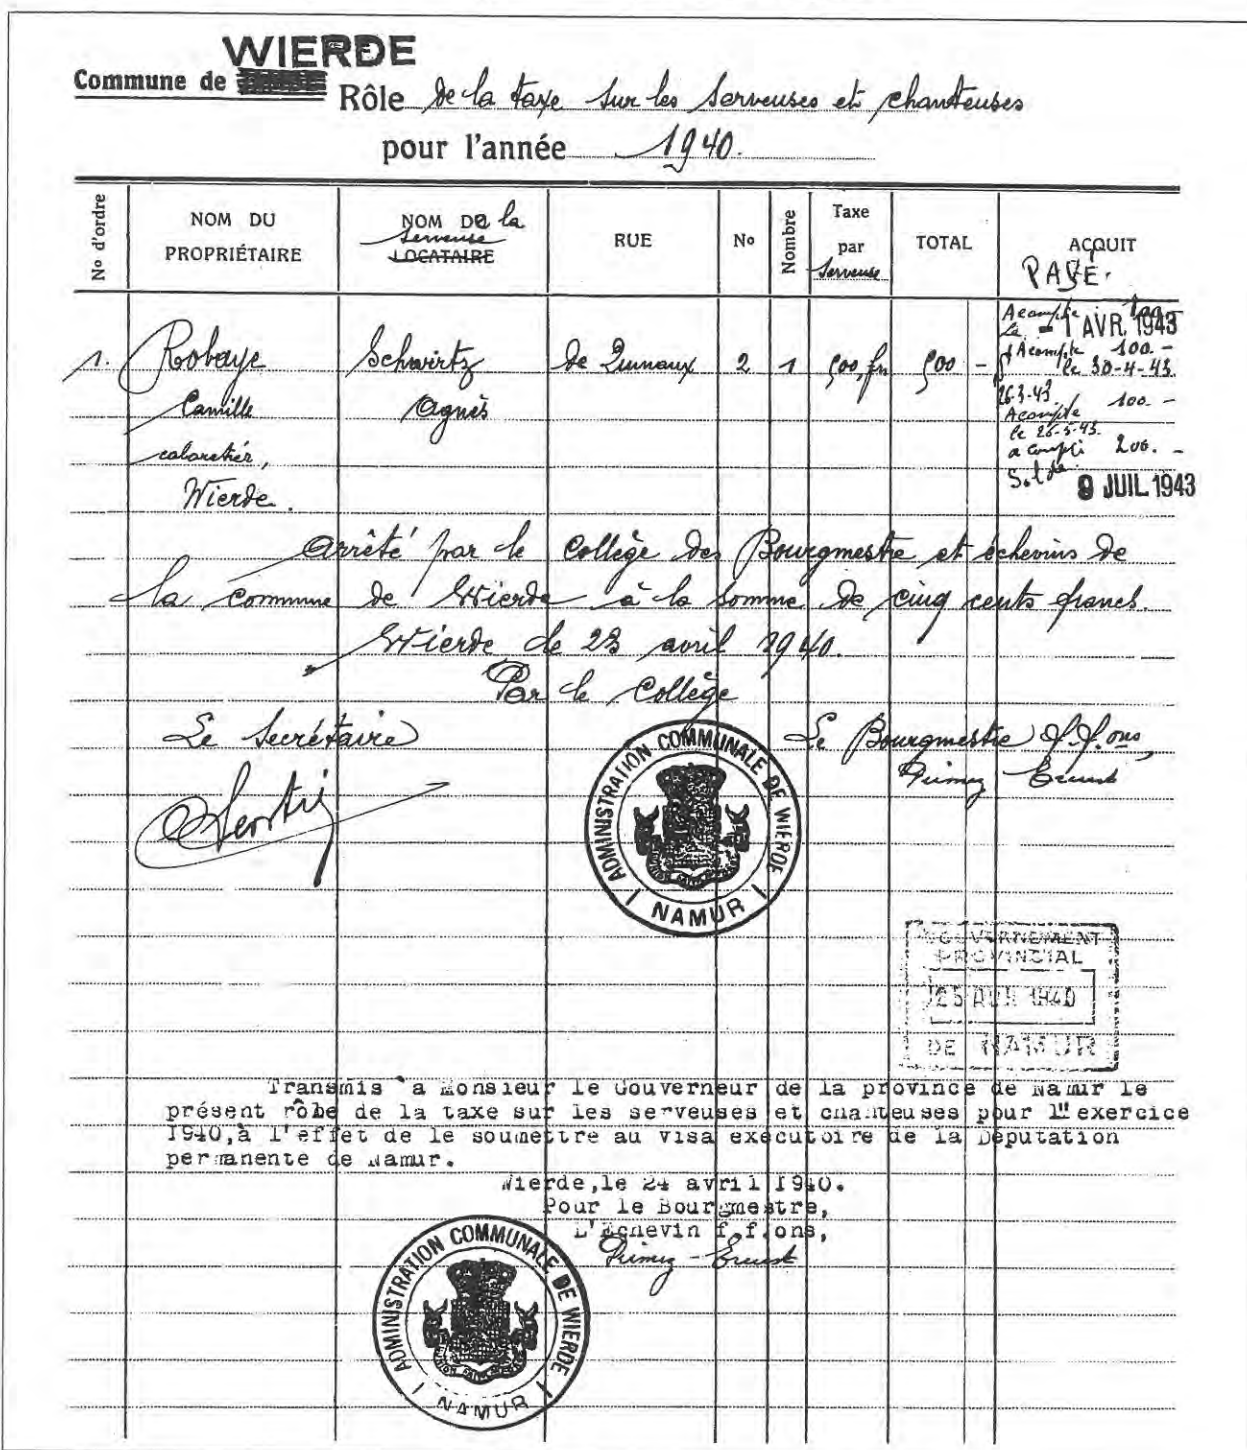 WIERDE
Commune de
Rôle de la taxe sur les serveuses et chanteuses
pour l'année 1940.
No d'ordre
NOM DU PROPRIÉTAIRE
NOM DE la serveuse LOCATAIRE
RUE
No
Nombre
Taxe par serveuse
TOTAL
ACQUIT
PAYÉ.
Acompte
le - 1 AVR. 1943
1. Robaye Schwirtz de Quinaux 2 1 500, fr 500 -
Acompte 100.-
le 30-4-43
Camille Agnès
Acompte 100.-
le 26-5-43.
cabaretier,
200.-
Solde
Wierde.
9 JUIL 1943
Arrêté par le Collège des Bourgmestre et échevins de
la commune de Wierde à la somme de cinq cents francs.
Wierde le 23 avril 1940.
Par le Collège
Le Secrétaire
Le Bourgmestre f.f.ons,
Ernest
ADMINISTRATION COMMUNALE DE WIERDE
NAMUR
GOUVERNEMENT
PROVINCIAL
25 AVR 1940
DE NAMUR
Transmis à Monsieur le Gouverneur de la province de Namur le
présent rôle de la taxe sur les serveuses et chanteuses pour l'exercice
1940,à l'effet de le soumettre au visa exécutoire de la Députation
permanente de Namur.
Wierde,le 24 avril 1940.
Pour le Bourgmestre,
L'Echevin f.f.ons,
Ernest
ADMINISTRATION COMMUNALE DE WIERDE
NAMUR